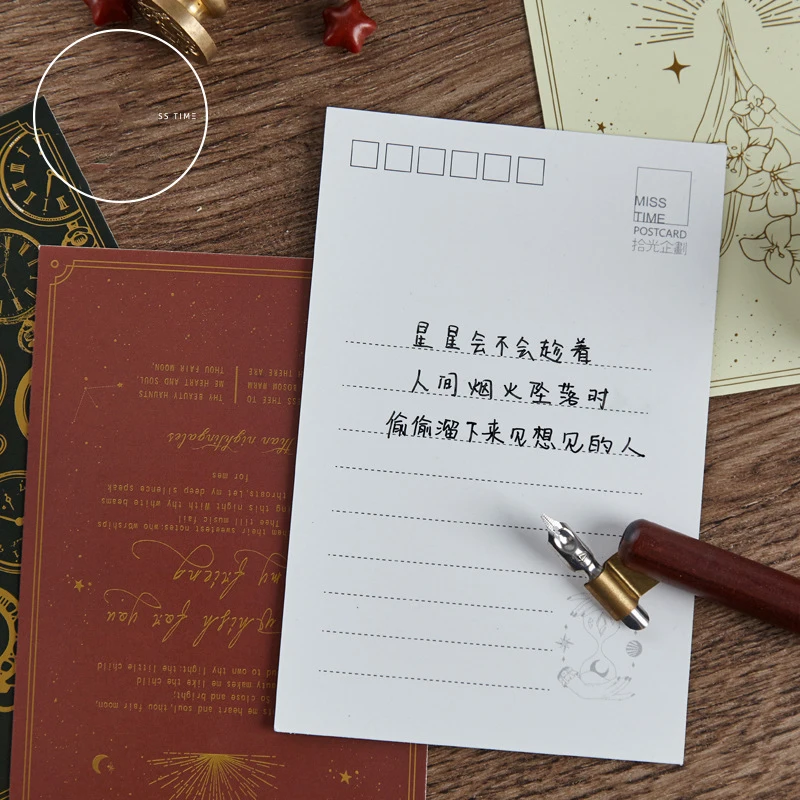 SS TIME
MISS
TIME
POSTCARD
拾光企劃
星星会不会趁着
人间烟火坠落时
偷偷溜下来见想见的人
ts me heart and soul, thou fair moon,
So close and bright,
auty makes me like the child
child
ad to can thy light: the little child
Whish for you
my friend
hem their sweetest notes: who worships
Thee till music fail
ing this night With thy white beams
throats. Let my deep silence speak
for mes
than nightingales
THY BEAUTY HAUNTS
ME HEART AND SOUL
THOU FAIR MOON,
SS THEE TO
BOSOM WARM
THERE ARE